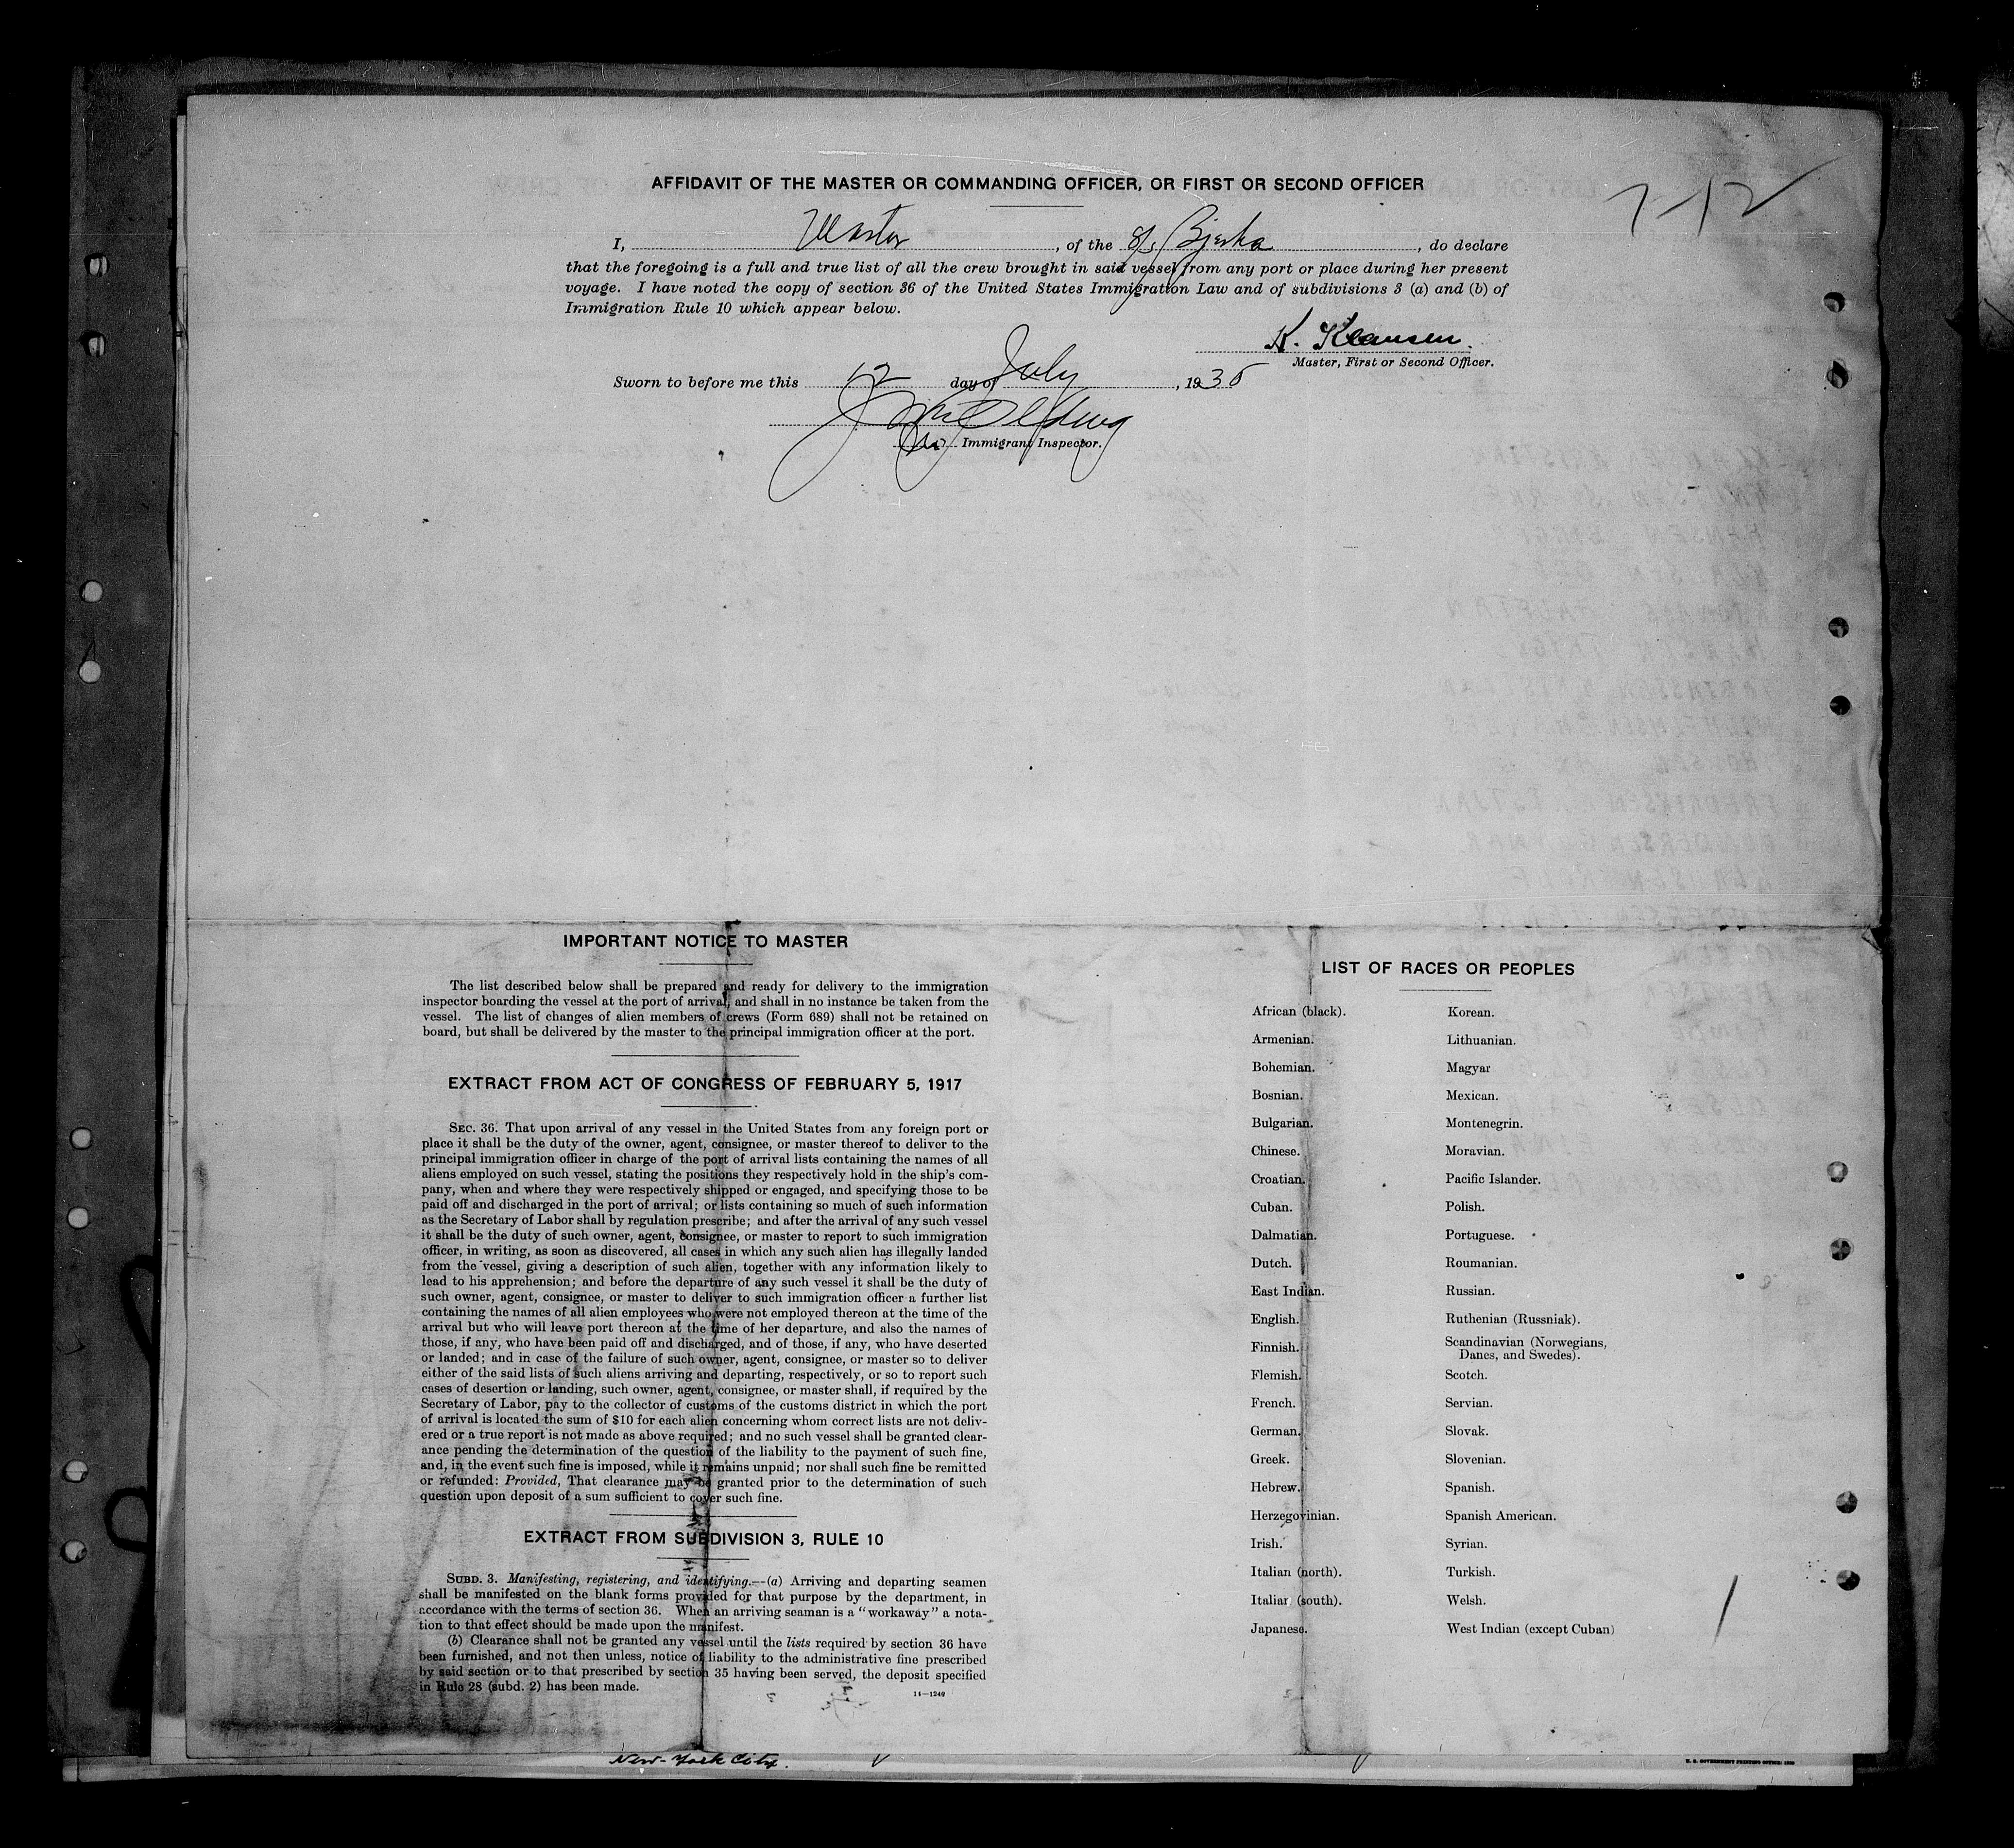 AFFIDAVIT OF THE MASTER OR COMMANDING OFFICER, OR FIRST OR SECOND OFFICER
7-12
I, Master, of the S/S Bjerka, do declare
that the foregoing is a full and true list of all the crew brought in said vessel from any port or place during her present
voyage. I have noted the copy of section 36 of the United States Immigration Law and of subdivisions 3 (a) and (b) of
Immigration Rule 10 which appear below.
K. Klausen.
Master, First or Second Officer.
Sworn to before me this 12 day of July, 1935
Immigrant Inspector.
IMPORTANT NOTICE TO MASTER
The list described below shall be prepared and ready for delivery to the immigration
inspector boarding the vessel at the port of arrival, and shall in no instance be taken from the
vessel. The list of changes of alien members of crews (Form 689) shall not be retained on
board, but shall be delivered by the master to the principal immigration officer at the port.
EXTRACT FROM ACT OF CONGRESS OF FEBRUARY 5, 1917
SEC. 36. That upon arrival of any vessel in the United States from any foreign port or
place it shall be the duty of the owner, agent, consignee, or master thereof to deliver to the
principal immigration officer in charge of the port of arrival lists containing the names of all
aliens employed on such vessel, stating the positions they respectively hold in the ship's com-
pany, when and where they were respectively shipped or engaged, and specifying those to be
paid off and discharged in the port of arrival; or lists containing so much of such information
as the Secretary of Labor shall by regulation prescribe; and after the arrival of any such vessel
it shall be the duty of such owner, agent, consignee, or master to report to such immigration
officer, in writing, as soon as discovered, all cases in which any such alien has illegally landed
from the vessel, giving a description of such alien, together with any information likely to
lead to his apprehension; and before the departure of any such vessel it shall be the duty of
such owner, agent, consignee, or master to deliver to such immigration officer a further list
containing the names of all alien employees who were not employed thereon at the time of the
arrival but who will leave port thereon at the time of her departure, and also the names of
those, if any, who have been paid off and discharged, and of those, if any, who have deserted
or landed; and in case of the failure of such owner, agent, consignee, or master so to deliver
either of the said lists of such aliens arriving and departing, respectively, or so to report such
cases of desertion or landing, such owner, agent, consignee, or master shall, if required by the
Secretary of Labor, pay to the collector of customs of the customs district in which the port
of arrival is located the sum of $10 for each alien concerning whom correct lists are not deliv-
ered or a true report is not made as above required; and no such vessel shall be granted clear-
ance pending the determination of the question of the liability to the payment of such fine,
and, in the event such fine is imposed, while it remains unpaid; nor shall such fine be remitted
or refunded: Provided, That clearance may be granted prior to the determination of such
question upon deposit of a sum sufficient to cover such fine.
EXTRACT FROM SUBDIVISION 3, RULE 10
SUBD. 3. Manifesting, registering, and identifying.—(a) Arriving and departing seamen
shall be manifested on the blank forms provided for that purpose by the department, in
accordance with the terms of section 36. When an arriving seaman is a "workaway" a nota-
tion to that effect should be made upon the manifest.
(b) Clearance shall not be granted any vessel until the lists required by section 36 have
been furnished, and not then unless, notice of liability to the administrative fine prescribed
by said section or to that prescribed by section 35 having been served, the deposit specified
in Rule 28 (subd. 2) has been made.
14—1240
LIST OF RACES OR PEOPLES
African (black).
Armenian.
Bohemian.
Bosnian.
Bulgarian.
Chinese.
Croatian.
Cuban.
Dalmatian.
Dutch.
East Indian.
English.
Finnish.
Flemish.
French.
German.
Greek.
Hebrew.
Herzegovinian.
Irish.
Italian (north).
Italian (south).
Japanese.
Korean.
Lithuanian.
Magyar
Mexican.
Montenegrin.
Moravian.
Pacific Islander.
Polish.
Portuguese.
Roumanian.
Russian.
Ruthenian (Russniak).
Scandinavian (Norwegians,
Danes, and Swedes).
Scotch.
Servian.
Slovak.
Slovenian.
Spanish.
Spanish American.
Syrian.
Turkish.
Welsh.
West Indian (except Cuban)
New-York City.
U. S. GOVERNMENT PRINTING OFFICE: